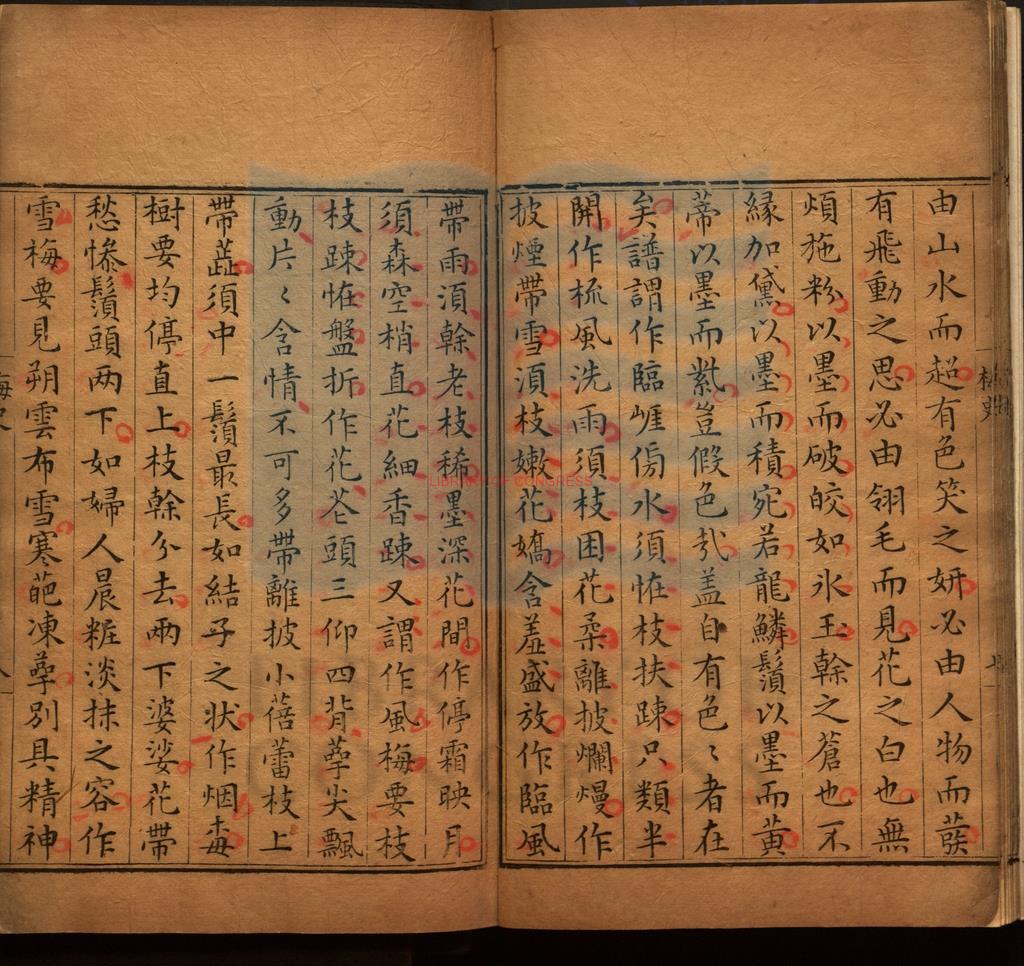 由山水而超有色笑之妍必由人物而蕟
有飛動之思必由翎毛而見花之白也無
煩施粉以墨而破皎如氷玉幹之蒼也不
縁加黛以墨而積宛若龍鱗鬚以墨而黄
蒂以墨而紫豈假色㢤盖自有色〻者在
矣譜謂作臨崕傍水須恠枝扶踈只類半
開作梳風洗雨須枝困花柔離披爛熳作
披煙帶雪湏枝嫩花嬌含羞盛放作臨風
帶雨湏幹老枝稀墨深花間作停霜映月
須森空梢直花細香踈又謂作風梅要枝
枝踈恠盤折作花苍頭三仰四背蕚尖飄
動片〻含情不可多帶離披小蓓蕾枝上
帶蕋須中一鬚最長如結子之状作烟梅
樹要均停直上枝幹分去兩下婆娑花帶
愁慘鬚頭两下如婦人晨粧淡抹之容作
雪梅要見朔雲布雪寒葩凍蕚別具精神
梅史
LIBRARY OF CONGRESS